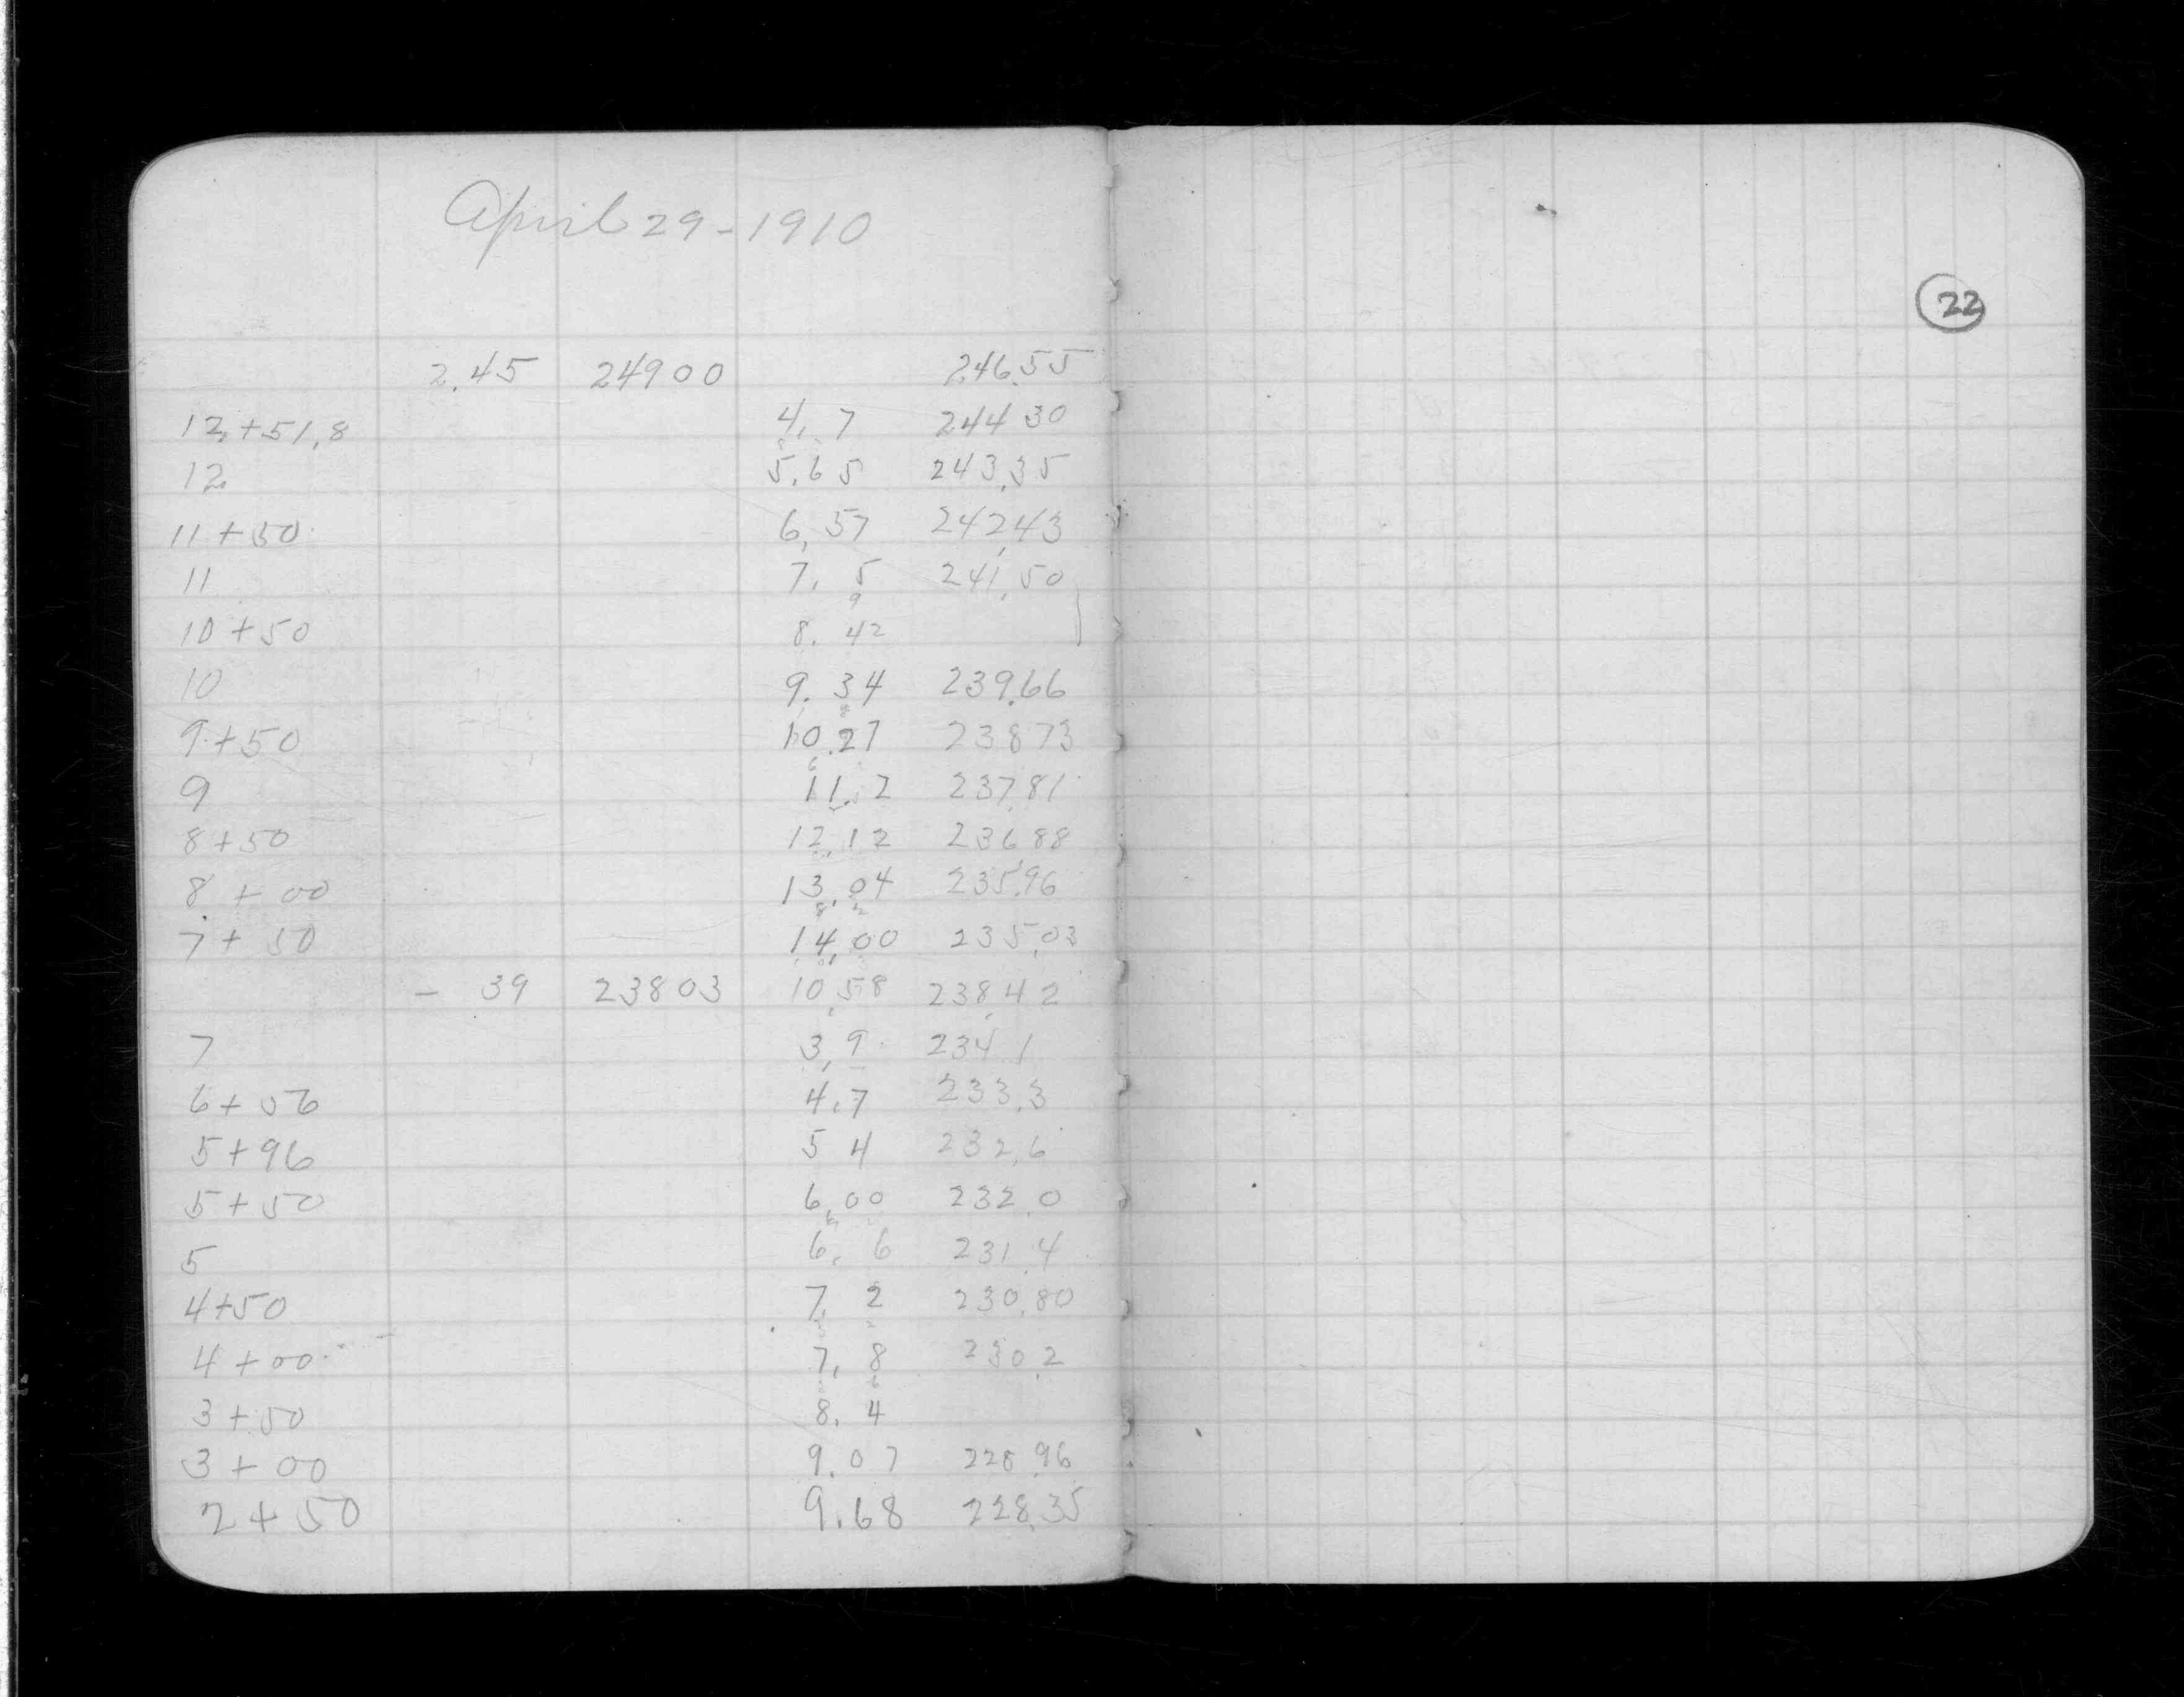 April 29-1910
22
2.45 24900 246.55
12+51.8 4.7 244 30
12 5.65 243.35
11+50 6.57 242.43
11 7.5 241.50
10+50 8.42
10 9.34 239.66
9+50 10.27 23873
9 11.2 237.81
8+50 12.12 236.88
8+00 13.04 235.96
7+50 14.00 235.03
- 39 23803 10.58 238.42
7 3.9 234 1
6+56 4.7 233.3
5+96 5 4 232.6
5+50 6.00 232.0
5 6.6 231.4
4+50 7.2 230.80
4+00 7.8 230.2
3+50 8.4
3+00 9.07 228.96
2+50 9.68 228.35